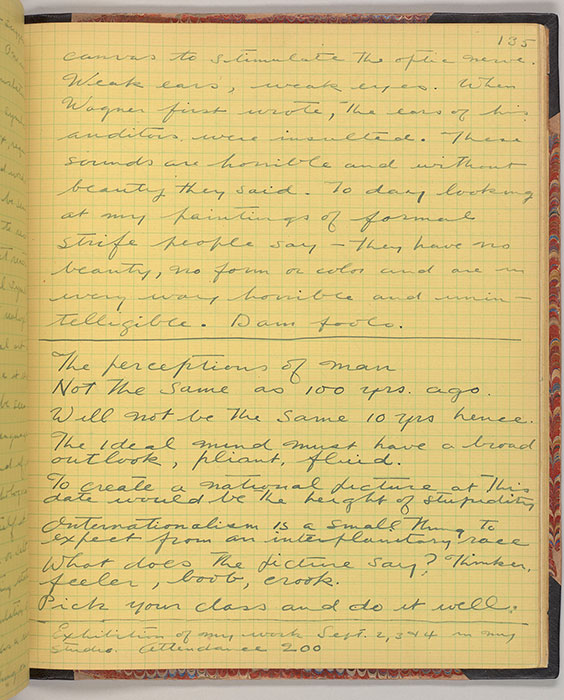 135
canvas to stimulate the optic nerve.
Weak ears, weak eyes. When
Wagner first wrote, the ears of his
auditors were insulted. These
sounds are horrible and without
beauty they said. To day looking
at my paintings of formal
strife people say – they have no
beauty, no form or color and are in
every way horrible and unin-
telligible. Dam fools.
The perceptions of man
Not the same as 100 yrs. ago.
Will not be the same 10 yrs hence.
The Ideal mind must have a broad
outlook, pliant, fluid.
To create a national picture at this
date would be the height of stupidity
Internationalism is a small thing to
expect from an interplanetary race
What does the picture say? Thinker,
feeler, boob, crook.
Pick your class and do it well.
Exhibition of my work Sept. 2, 3 & 4 in my
studio. Attendance 200